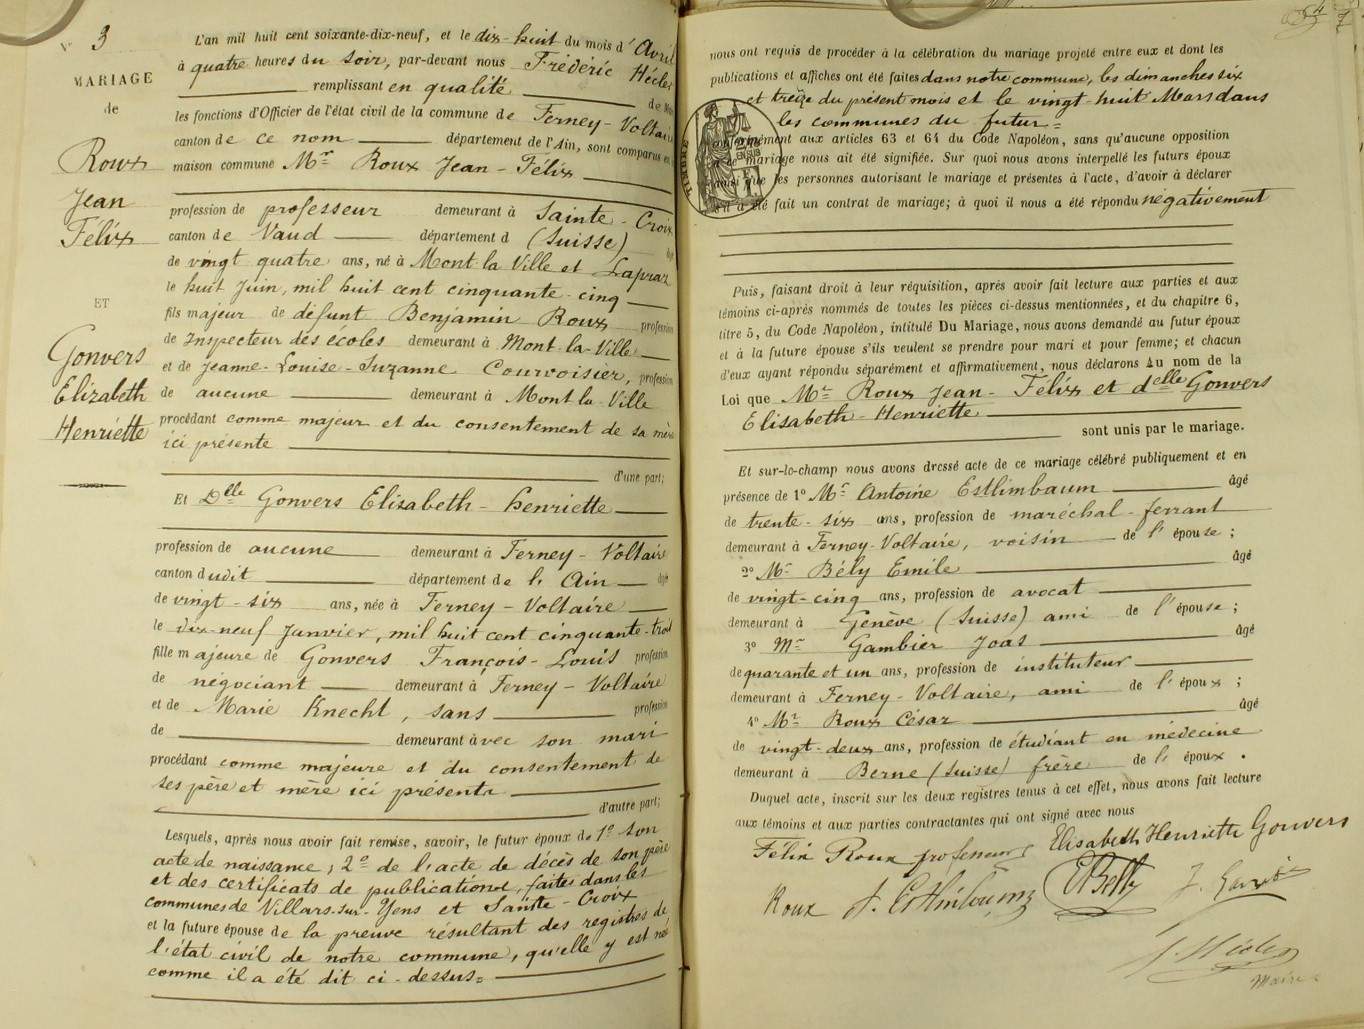 N° 3
MARIAGE
de
Roux
Jean
Félix
ET
Gonvers
Elizabeth
Henriette
L'an mil huit cent soixante-dix-neuf, et le dix-huit du mois d'Avril
à quatre heures du soir, par-devant nous Frédéric
remplissant en qualité de
les fonctions d'Officier de l'état civil de la commune de Ferney-Voltaire
canton de ce nom département de l'Ain, sont comparus en
maison commune Mr Roux Jean-Félix
profession de professeur demeurant à Sainte-Croix
canton de Vaud département d (Suisse)
de vingt quatre ans, né à Mont-la-Ville et Lapraz
le huit Juin, mil huit cent cinquante-cinq
fils majeur de défunt Benjamin Roux profession
de Inspecteur des écoles demeurant à Mont-la-Ville
et de Jeanne-Louise-Suzanne Courvoisier, profession
de aucune demeurant à Mont-la-Ville
procédant comme majeur et du consentement de sa mère
ici présente
d'une part;
Et Delle Gonvers Elisabeth-henriette
profession de aucune demeurant à Ferney-Voltaire
canton dudit département de l'Ain âgée
de vingt-six ans, née à Ferney-Voltaire
le dix-neuf Janvier, mil huit cent cinquante-trois
fille majeure de Gonvers François-Louis profession
de négociant demeurant à Ferney-Voltaire
et de Marie Knecht, sans profession
de demeurant avec son mari
procédant comme majeure et du consentement de
ses père et mère ici présents
d'autre part;
Lesquels, après nous avoir fait remise, savoir, le futur époux de 1° son
acte de naissance; 2° de l'acte de décès de son père
et des certificats de publications, faites dans les
communes de Villars-sur-Yens et Sainte-Croix
et la future épouse de la preuve résultant des registres de
l'état civil de notre commune, qu'elle y est née
comme il a été dit ci-dessus=
nous ont requis de procéder à la célébration du mariage projeté entre eux et dont les
publications et affiches ont été faites dans notre commune, les dimanches six
et treize du présent mois et le vingt-huit Mars dans
les communes du futur=
conformément aux articles 63 et 64 du Code Napoléon, sans qu'aucune opposition
au dit mariage nous ait été signifiée. Sur quoi nous avons interpellé les futurs époux
ainsi que les personnes autorisant le mariage et présentes à l'acte, d'avoir à déclarer
s'il a été fait un contrat de mariage; à quoi il nous a été répondu négativement
TIMBRE
Puis, faisant droit à leur réquisition, après avoir fait lecture aux parties et aux
témoins ci-après nommés de toutes les pièces ci-dessus mentionnées, et du chapitre 6,
titre 5, du Code Napoléon, intitulé Du Mariage, nous avons demandé au futur époux
et à la future épouse s'ils veulent se prendre pour mari et pour femme; et chacun
d'eux ayant répondu séparément et affirmativement, nous déclarons Au nom de la
Loi que Mr Roux Jean-Félix et delle Gonvers
Elisabeth-Henriette
sont unis par le mariage.
Et sur-le-champ nous avons dressé acte de ce mariage célébré publiquement et en
présence de 1° Mr Antoine Estlimbaum âgé
de trente-six ans, profession de maréchal-ferrant
demeurant à Ferney-Voltaire, voisin de l'épouse;
2° Mr Bély Emile âgé
de vingt-cinq ans, profession de avocat
demeurant à Genève (Suisse) ami de l'épouse;
3° Mr Gambier Joas âgé
de quarante et un ans, profession de instituteur
demeurant à Ferney-Voltaire, ami de l'époux;
4° Mr Roux César âgé
de vingt-deux ans, profession de étudiant en médecine
demeurant à Berne (Suisse) frère de l'époux.
Duquel acte, inscrit sur les deux registres tenus à cet effet, nous avons fait lecture
aux témoins et aux parties contractantes qui ont signé avec nous
Félix Roux professeur Elisabeth Henriette Gonvers
Roux
Maire